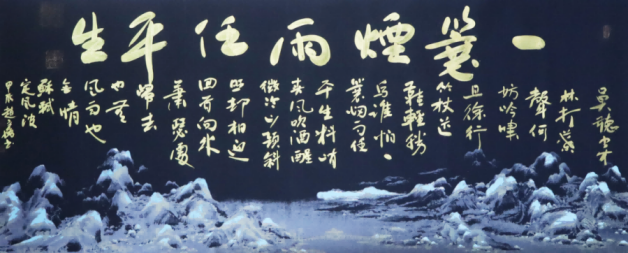 一蓑煙雨任平生
莫聽穿
林打葉
聲何
妨吟嘯
且徐行
竹杖芒
鞋輕勝
馬誰怕一
蓑煙雨任
平生料峭
春風吹酒醒
微冷山頭斜
照却相迎
回首向來
蕭瑟處
歸去
也無
風雨也
無晴
蘇軾
定風波
甲辰